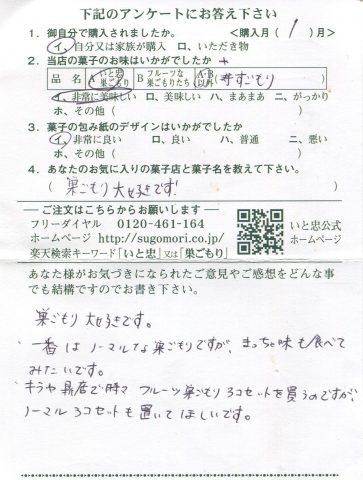 下記のアンケートにお答え下さい
1．御自分で購入されましたか。 <購入月( 1 )月>
イ、自分又は家族が購入 ロ、いただき物
2．当店の菓子のお味はいかがでしたか
品 名 A いと忠巣ごもり B フルーツな巣ごもりたち A・B以外 すごもり
イ、非常に美味しい ロ、美味しい ハ、まあまあ ニ、がっかり
ホ、その他（ ）
3．菓子の包み紙のデザインはいかがでしたか
イ、非常に良い ロ、良い ハ、普通 ニ、悪い
ホ、その他（ ）
4．あなたのお気に入りの菓子店と菓子名を教えて下さい。
（ 巣ごもり 大好きです! ）
ご注文はこちらからお願いします
フリーダイヤル 0120-461-164
ホームページ http://sugomori.co.jp/
楽天検索キーワード「いと忠」又は「巣ごもり」
いと忠公式
ホームページ
あなた様がお気づきになられたご意見やご感想をどんな事
でも結構ですのでお書き下さい。
巣ごもり 大好きです。
一番は ノーマルな巣ごもりですが、まっちゃ味も食べて
みたいです。
キラヤ 店で時々 フルーツ巣ごもり 3コセットを買うのですが、
ノーマル 3コセットも置いて ほしいです。